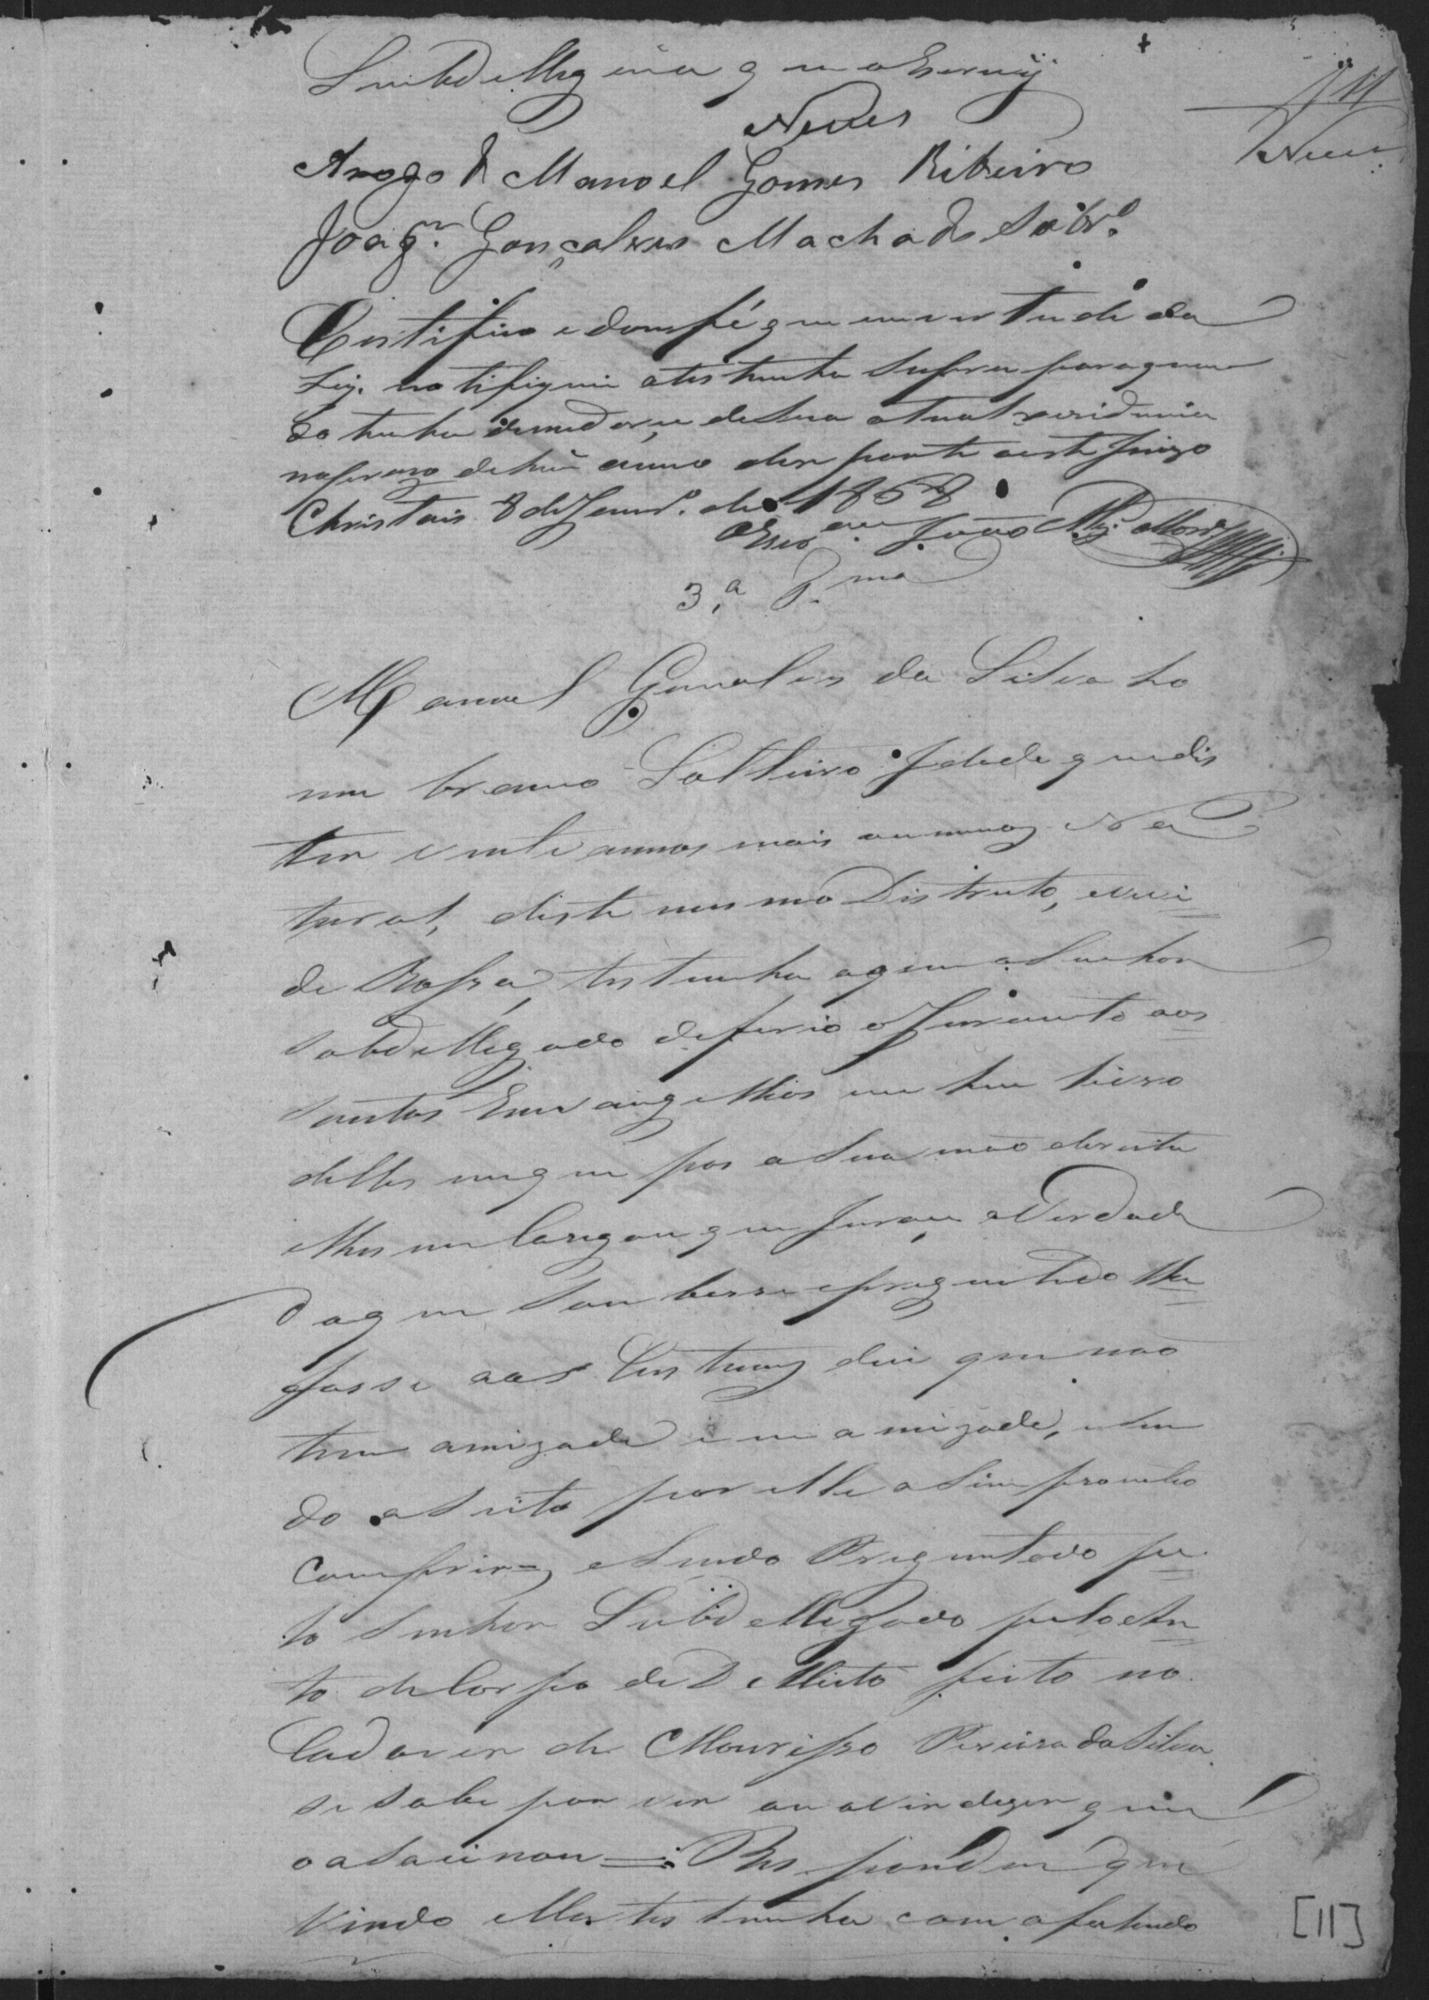 Subdellegacia que o Escrevy
11
Neves
Neves
Arogo de Manoel Gomes Ribeiro
Joaqm. Gonçalves Machado Sobro.
Certifico e dou fé que em vertude da
Ley. notifiquei a testemunha Supra para quan
do tenha de mudar-se de sua atual residencia
no praso de hũ anno der parte a este Juizo
Christais 8 de Janro. de 1868
O Escram. João
3.ª T.ma
Manoel Gonsalves da Silva ho
mem branco Solteiro Idade que dis
ter vinte annos mais ou menos Na
tural, deste mesmo Distrito, e vivi
de Rossa, testemunha a quem o Senhor
Subdellegado deferio o Juramento aos
Santos Envangelhos em hum livro
delles em que pos a sua mão dereita
e lhes emcaregou que Jurase a Verdade
do que Soubesse e preguntado lhe
fosse aos Custumes dice que não
tem amizade e inamizade, e sen
do aseito por elle asim prometeo
Comprir= e Sendo Preguntado pe
lo Senhor Subdellegado pelo Au
to de Corpo de Dellicto feito no
Cadaver de Mourisso Pereira da Silva
se sabe por ver ou ouvir dizer quem
o asacinou =: Respondeu que
vindo elle testemunha com o falecido
[11]